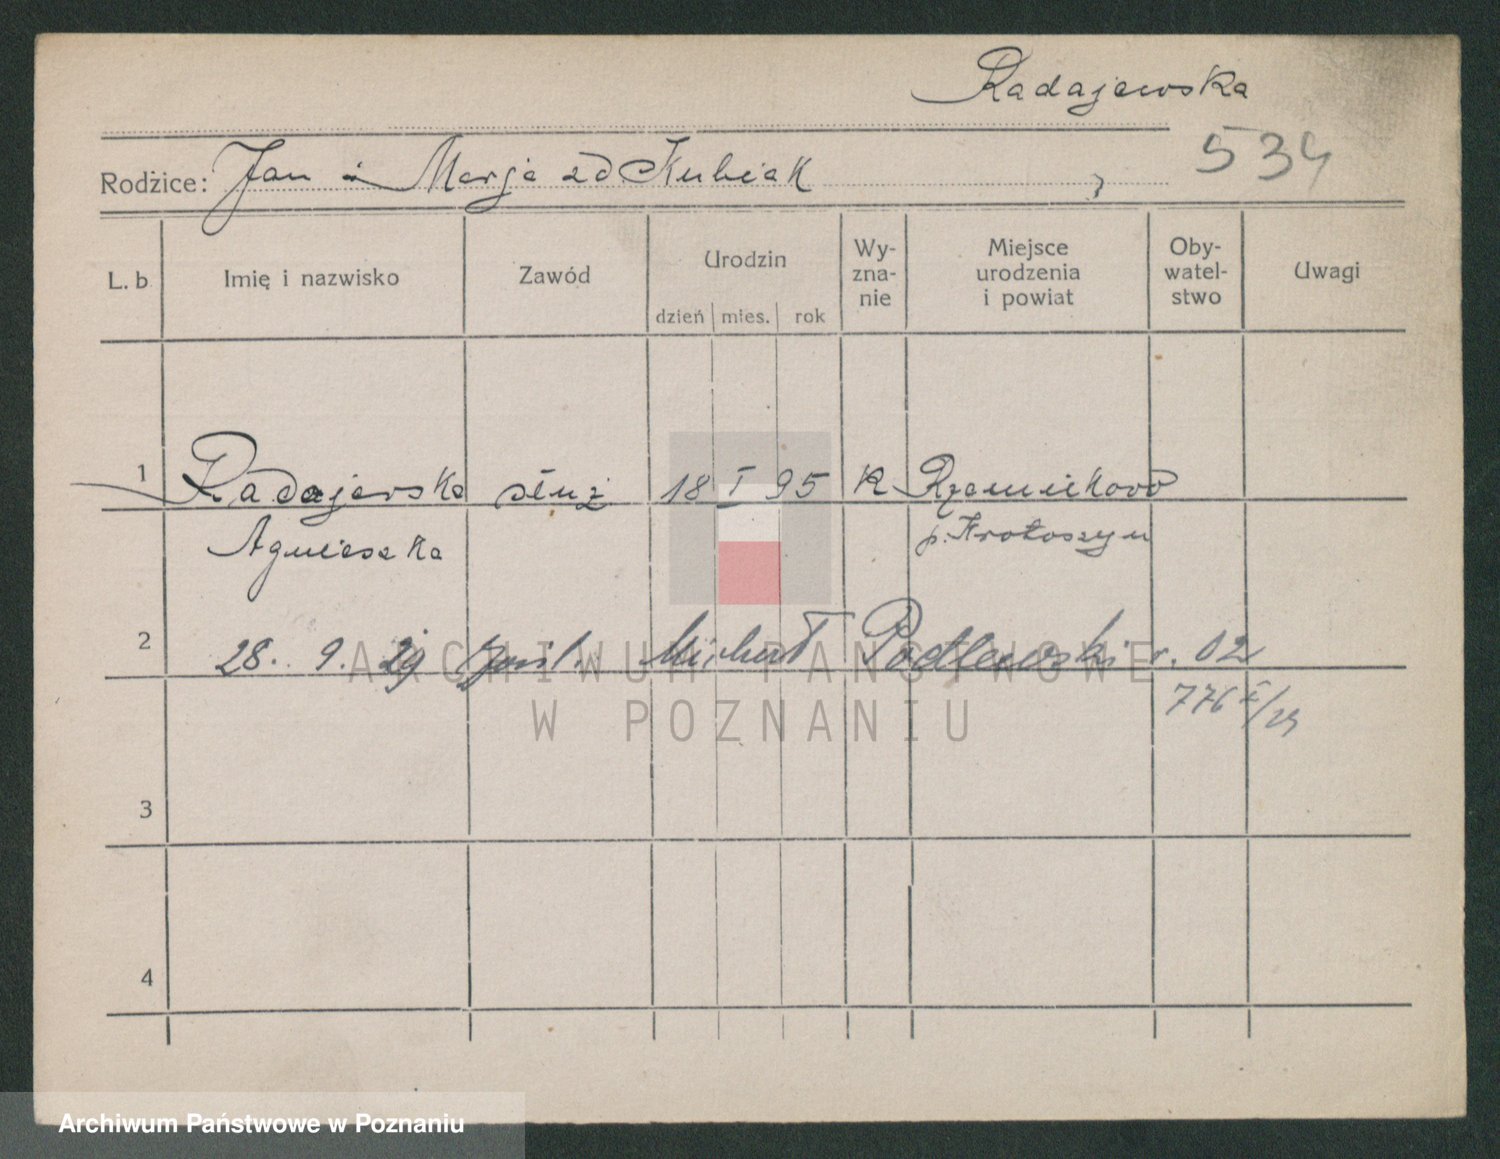 Radajewska
534
Rodzice: Jan i Marja zd Kubiak
L. b. Imię i nazwisko Zawód Urodzin dzień mies. rok Wy-zna-nie Miejsce urodzenia i powiat Oby-watel-stwo Uwagi
1 Radajewska służ 18 I 95 K
Agnieszka p. Krotoszyn
2 28. 9. 29 Michał Podlewski r. 02
776
3
4
ARCHIWUM PAŃSTWOWE
W POZNANIU
Archiwum Państwowe w Poznaniu